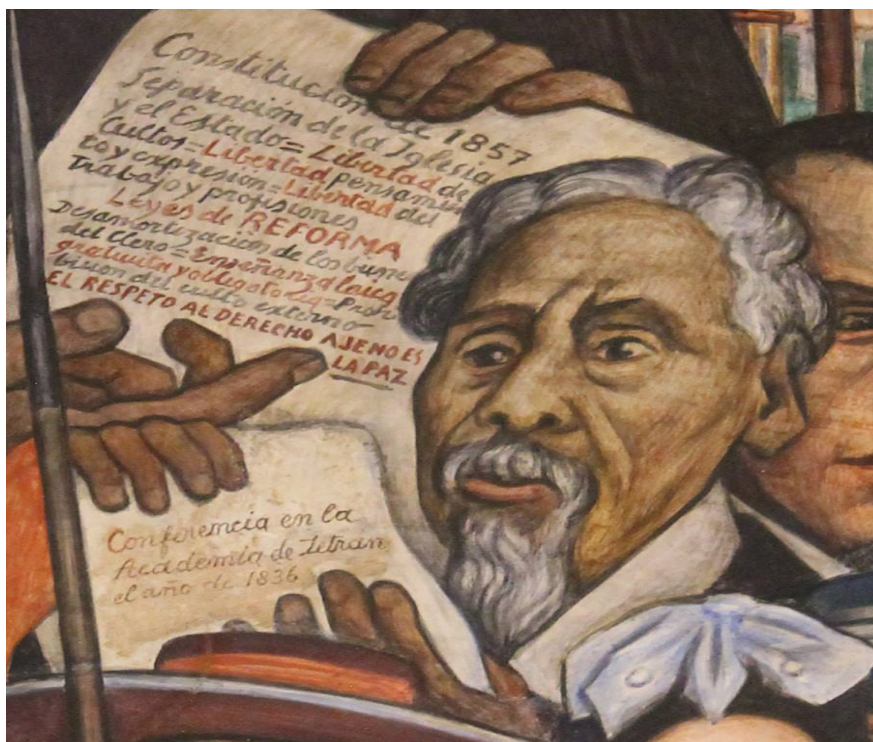 Constitución de 1857
Separación de la Iglesia
y el Estado = Libertad de
Cultos = Libertad pensamien
to y expresion = Libertad del
Trabajo y profisiones
Leyes de REFORMA
Desamortizacion de los biene
del Clero = Enseñanza laica
gratuita y obligatoria = Prohi
bision del culto externo
EL RESPETO AL DERECHO AJENO ES
LA PAZ
Conferencia en la
Academia de Letran
el año de 1836